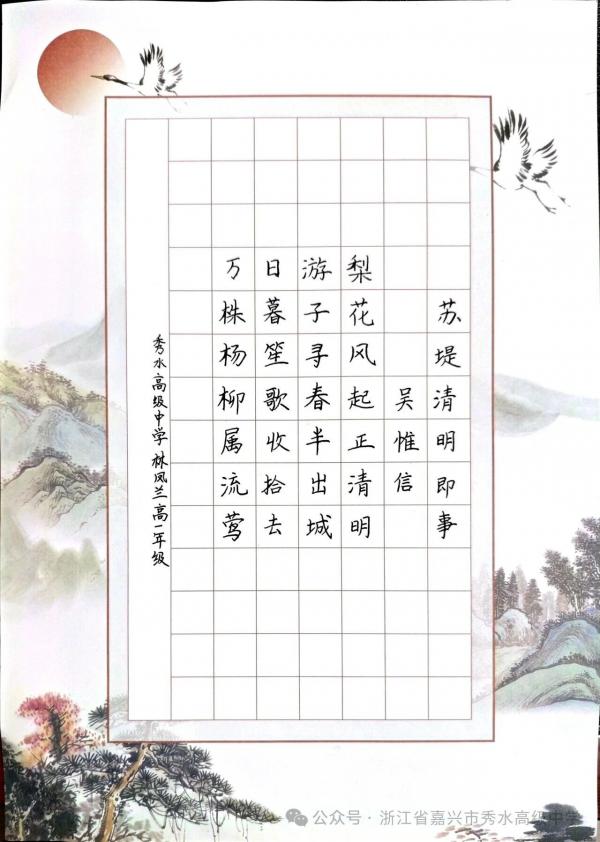 苏堤清明即事
吴惟信
梨花风起正清明
游子寻春半出城
日暮笙歌收拾去
万株杨柳属流莺
秀水高级中学 林凤兰 高一年级
公众号·浙江省嘉兴市秀水高级中学